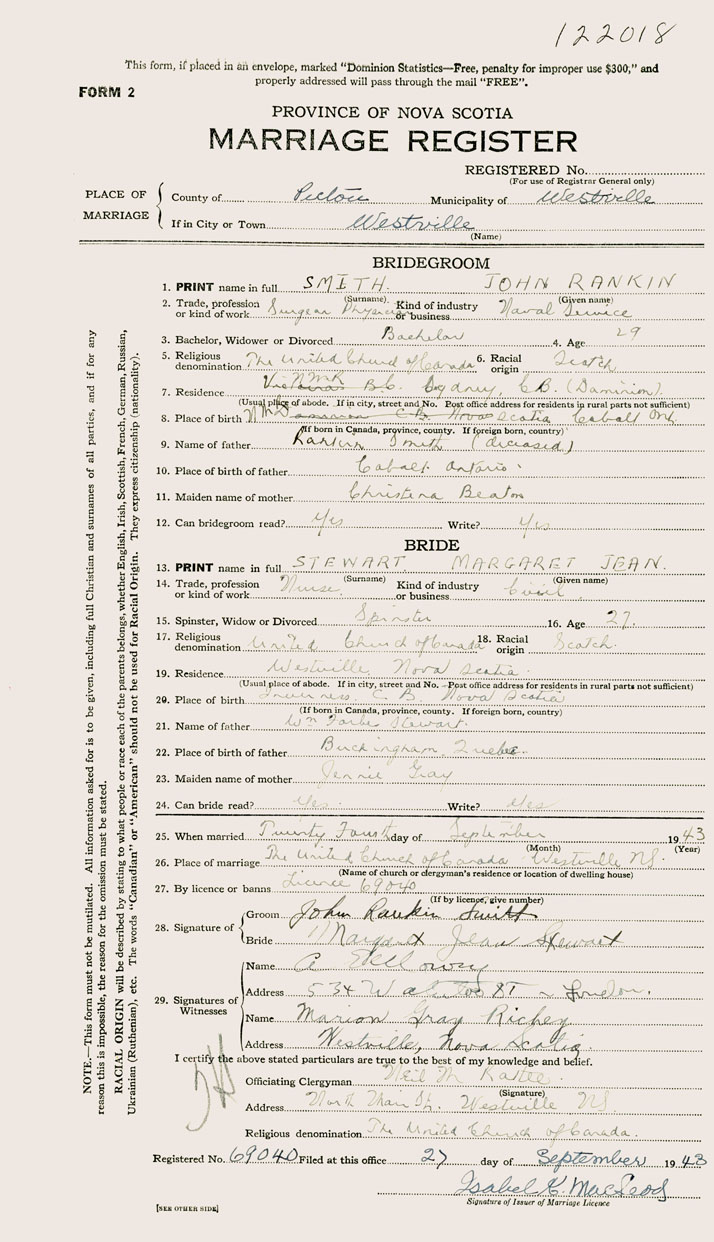 122018
This form, if placed in an envelope, marked "Dominion Statistics—Free, penalty for improper use $300," and
properly addressed will pass through the mail "FREE".
FORM 2
PROVINCE OF NOVA SCOTIA
MARRIAGE REGISTER
REGISTERED No.
(For use of Registrar General only)
PLACE OF MARRIAGE
County of Pictou Municipality of Westville
If in City or Town Westville
(Name)
BRIDEGROOM
1. PRINT name in full SMITH JOHN RANKIN
(Surname) (Given name)
2. Trade, profession or kind of work Surgeon Physician Kind of industry or business Naval Service
3. Bachelor, Widower or Divorced Bachelor 4. Age 29
5. Religious denomination The United Church of Canada 6. Racial origin Scotch
7. Residence B.C. Sydney, C.B. (Dominion)
(Usual place of abode. If in city, street and No. Post office address for residents in rural parts not sufficient)
8. Place of birth C.B. Nova Scotia Cobalt Ont
(If born in Canada, province, county. If foreign born, country)
9. Name of father Rankin Smith (deceased)
10. Place of birth of father Cobalt Ontario
11. Maiden name of mother Christena Beaton
12. Can bridegroom read? Yes Write? Yes
BRIDE
13. PRINT name in full STEWART MARGARET JEAN.
(Surname) (Given name)
14. Trade, profession or kind of work Nurse Kind of industry or business Civil
15. Spinster, Widow or Divorced Spinster 16. Age 27.
17. Religious denomination United Church of Canada 18. Racial origin Scotch.
19. Residence Westville, Nova Scotia
(Usual place of abode. If in city, street and No. Post office address for residents in rural parts not sufficient)
20. Place of birth Inverness C.B. Nova Scotia
(If born in Canada, province, county. If foreign born, country)
21. Name of father Wm Forbes Stewart.
22. Place of birth of father Buckingham, Quebec.
23. Maiden name of mother Jennie Gray
24. Can bride read? Yes. Write? Yes
25. When married Twenty Fourth day of September 1943
(Month) (Year)
26. Place of marriage The United Church of Canada Westville NS.
(Name of church or clergyman's residence or location of dwelling house)
27. By licence or banns Licence 69040
(If by licence, give number)
28. Signature of
Groom John Rankin Smith
Bride Margaret Jean Stewart
29. Signatures of Witnesses
Name A
Address 534 St London.
Name Marion Gray Richey
Address Westville, Nova Scotia
I certify the above stated particulars are true to the best of my knowledge and belief.
Officiating Clergyman Neil M.
(Signature)
Address North Main St. Westville NS
Religious denomination The United Church of Canada.
Registered No. 69040 Filed at this office 27 day of September 1943
Isabel K. MacLeod
Signature of Issuer of Marriage Licence
[SEE OTHER SIDE]
NOTE.—This form must not be mutilated. All information asked for is to be given, including full Christian and surnames of all parties, and if for any
reason this is impossible, the reason for the omission must be stated.
RACIAL ORIGIN will be described by stating to what people or race each of the parents belongs, whether English, Irish, Scottish, French, German, Russian,
Ukrainian (Ruthenian), etc. The words "Canadian" or "American" should not be used for Racial Origin. They express citizenship (nationality).